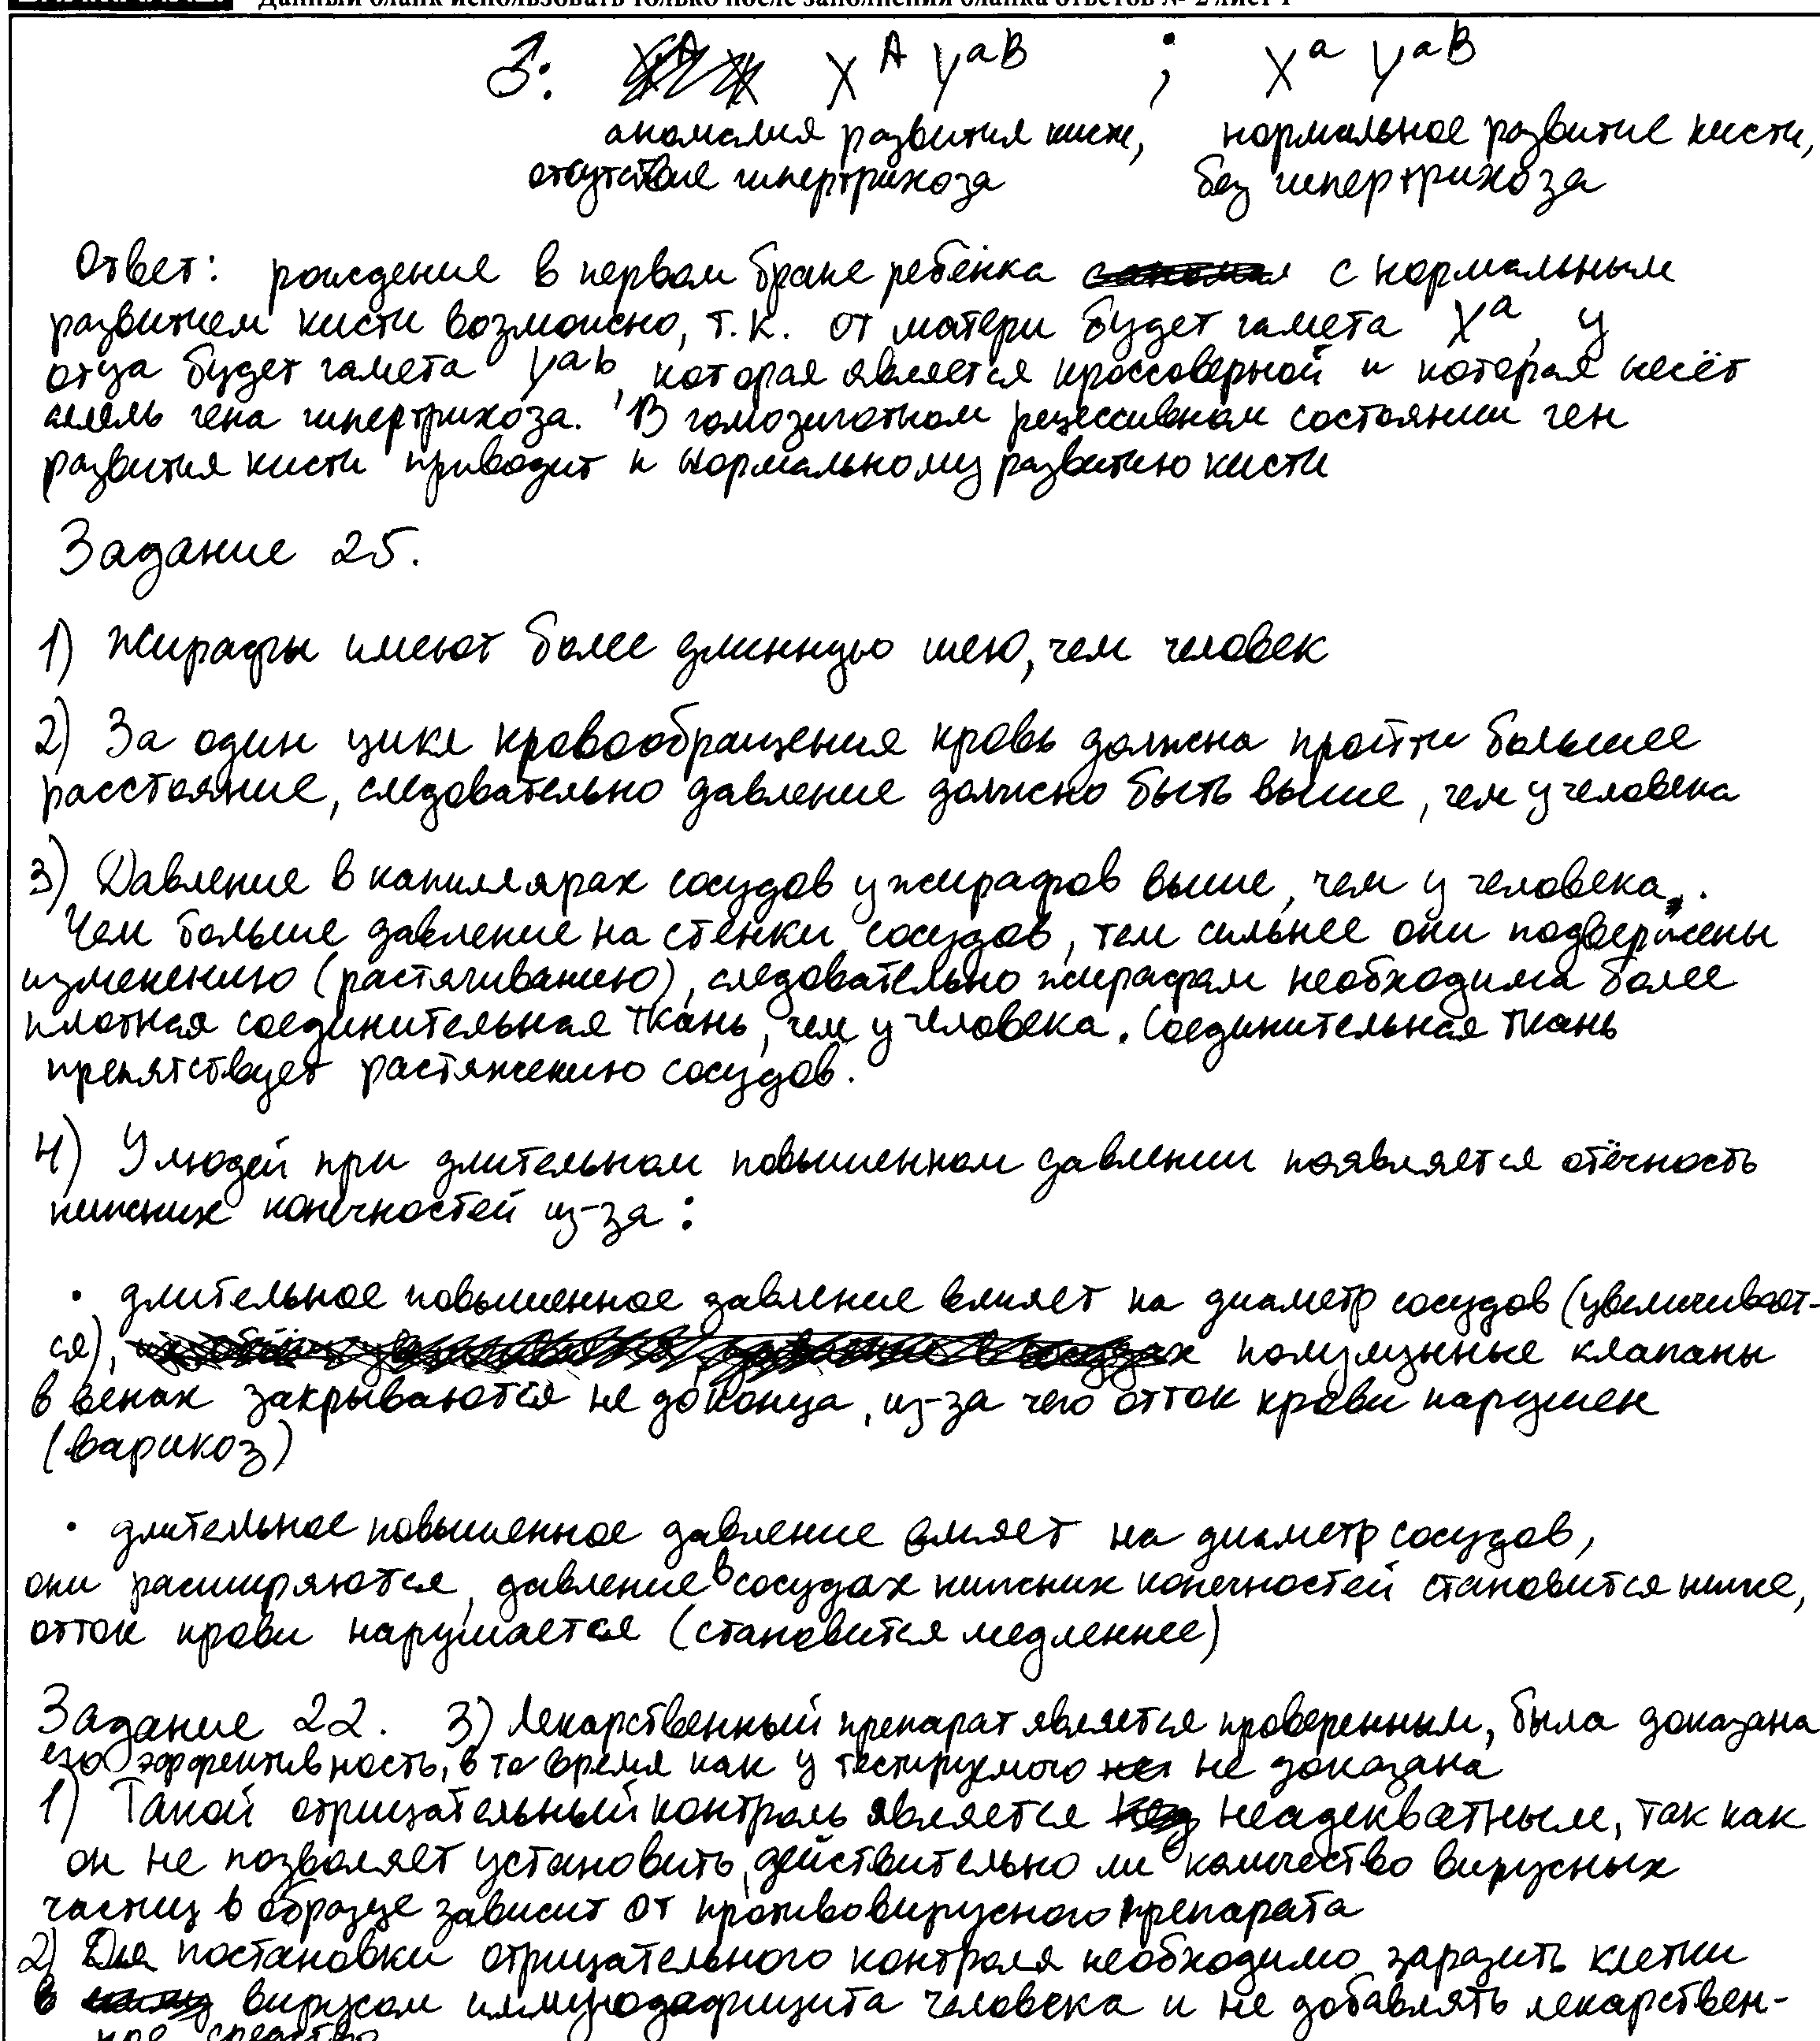 Данный бланк использовать только после заполнения бланка ответов № 2 лист 1
♂: X^A Y^aB ; X^a Y^aB
аномалия развития кисти, нормальное развитие кисти,
отсутствие гипертрихоза без гипертрихоза
Ответ: рождение в первом браке ребёнка с нормальным
развитием кисти возможно, т.к. от матери будет гамета X^a, у
отца будет гамета Y^ab, которая является кроссоверной и которая несёт
аллель гена гипертрихоза. В гомозиготном рецессивном состоянии ген
развития кисти приводит к нормальному развитию кисти
Задание 25.
1) Жирафы имеют более длинную шею, чем человек
2) За один цикл кровообращения кровь должна пройти большее
расстояние, следовательно давление должно быть выше, чем у человека
3) Давление в капиллярах сосудов у жирафов выше, чем у человека.
Чем больше давление на стенки сосудов, тем сильнее они подвержены
изменению (растягиванию), следовательно жирафам необходима более
плотная соединительная ткань, чем у человека. Соединительная ткань
препятствует растяжению сосудов.
4) У людей при длительном повышенном давлении появляется отёчность
нижних конечностей из-за:
• длительное повышенное давление влияет на диаметр сосудов (увеличивает-
ся), полулунные клапаны
в венах закрываются не до конца, из-за чего отток крови нарушен
(варикоз)
• длительное повышенное давление влияет на диаметр сосудов,
они расширяются, давление в сосудах нижних конечностей становится ниже,
отток крови нарушается (становится медленнее)
Задание 22. 3) Лекарственный препарат является проверенным, была доказана
его эффективность, в то время как у тестируемого не доказана
1) Такой отрицательный контроль является неадекватным, так как
он не позволяет установить, действительно ли количество вирусных
частиц в образце зависит от противовирусного препарата
2) Для постановки отрицательного контроля необходимо заразить клетки
в вирусом иммунодефицита человека и не добавлять лекарствен-
ное средство